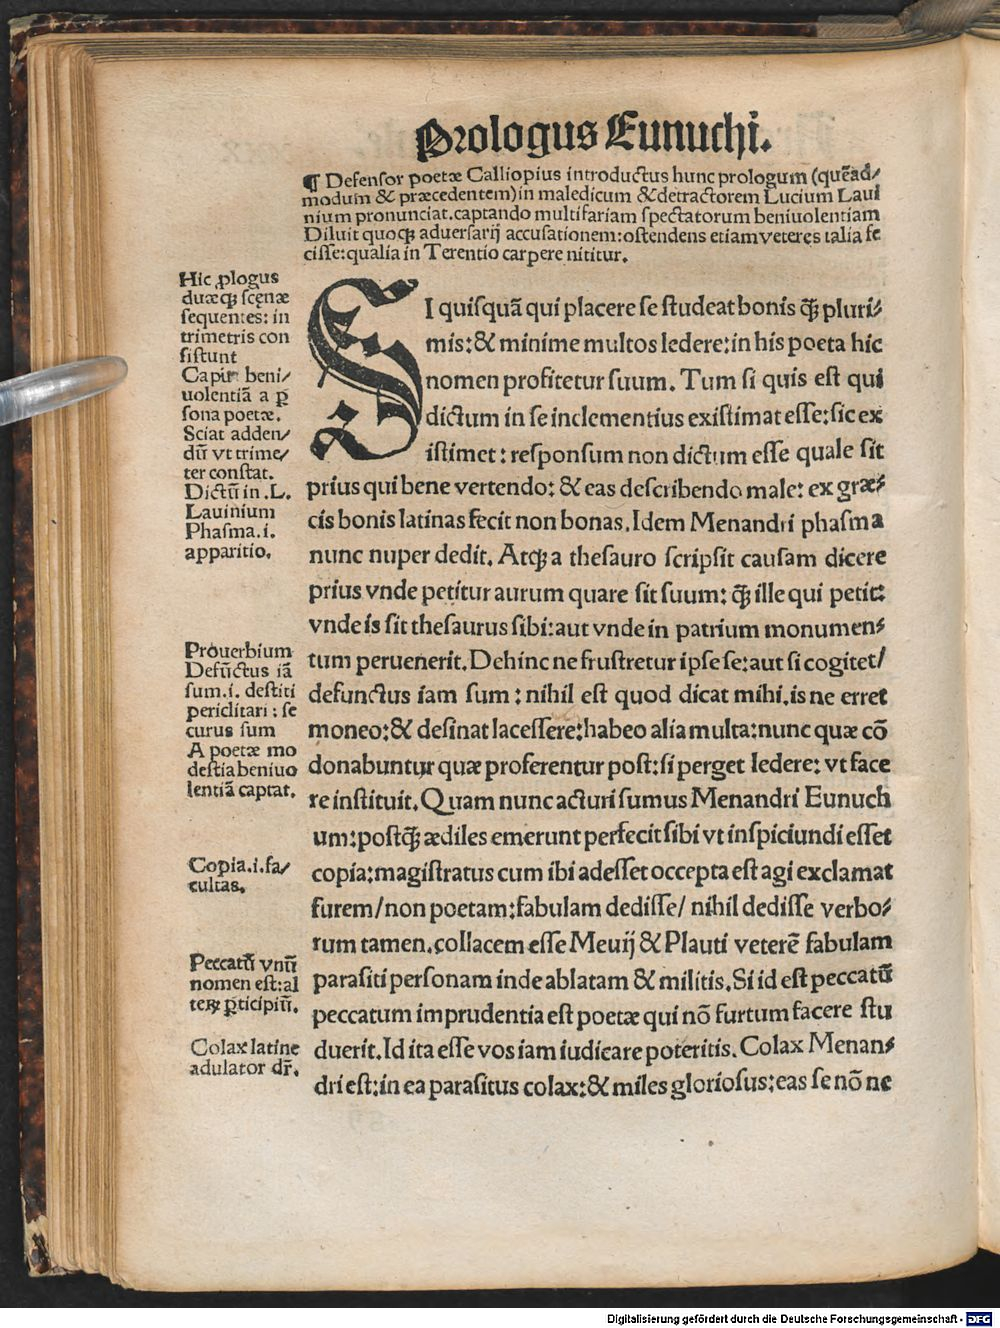 Prologus Eunuchi.
¶ Defensor poetæ Calliopius introductus hunc prologum (quēad/
modum & præcedentem) in maledicum & detractorem Lucium Laui
nium pronunciat. captando multifariam spectatorum beniuolentiam
Diluit quoqꝫ aduersarij accusationem: ostendens etiam veteres talia fe
cisse: qualia in Terentio carpere nititur.
Hic ꝓlogus
duæqꝫ scęnæ
sequentes: in
trimetris con
sistunt
Capit beni/
uolentiā a ꝑ
sona poetæ.
Sciat adden/
dū vt trime/
ter constat.
Dictū in .L.
Lauinium
Phasma .i.
apparitio.
Prouerbium
Defūctus iā
sum .i. destiti
periclitari : se
curus sum
A poetæ mo
destia beniuo
lentiā captat.
Copia .i. fa/
cultas.
Peccatū vnū
nomen est: al
teꝝ ꝑticipiū.
Colax latine
adulator dr̄.
SI quisquā qui placere se studeat bonis qꝫ̄ pluri⸗
mis: & minime multos ledere: in his poeta hic
nomen profitetur suum. Tum si quis est qui
dictum in se inclementius existimat esse: sic ex
istimet : responsum non dictum esse quale sit
prius qui bene vertendo: & eas describendo male: ex græ⸗
cis bonis latinas fecit non bonas. Idem Menandri phasma
nunc nuper dedit. Atqꝫ a thesauro scripsit causam dicere
prius vnde petitur aurum quare sit suum: qꝫ̄ ille qui petit:
vnde is sit thesaurus sibi: aut vnde in patrium monumen⸗
tum peruenerit. Dehinc ne frustretur ipse se: aut si cogitet/
defunctus iam sum : nihil est quod dicat mihi. is ne erret
moneo: & desinat lacessere: habeo alia multa: nunc quæ cō
donabuntur quæ proferentur post: si perget ledere: vt face
re instituit. Quam nunc acturi sumus Menandri Eunuch
um: postqꝫ̄ ædiles emerunt perfecit sibi vt inspiciundi esset
copia: magistratus cum ibi adesset occepta est agi exclamat
furem/ non poetam: fabulam dedisse/ nihil dedisse verbo⸗
rum tamen. collacem esse Meuij & Plauti veterē fabulam
parasiti personam inde ablatam & militis. Si id est peccatū
peccatum imprudentia est poetæ qui nō furtum facere stu
duerit. Id ita esse vos iam iudicare poteritis. Colax Menan⸗
dri est: in ea parasitus colax: & miles gloriosus: eas se nō ne
Digitalisierung gefördert durch die Deutsche Forschungsgemeinschaft - DFG